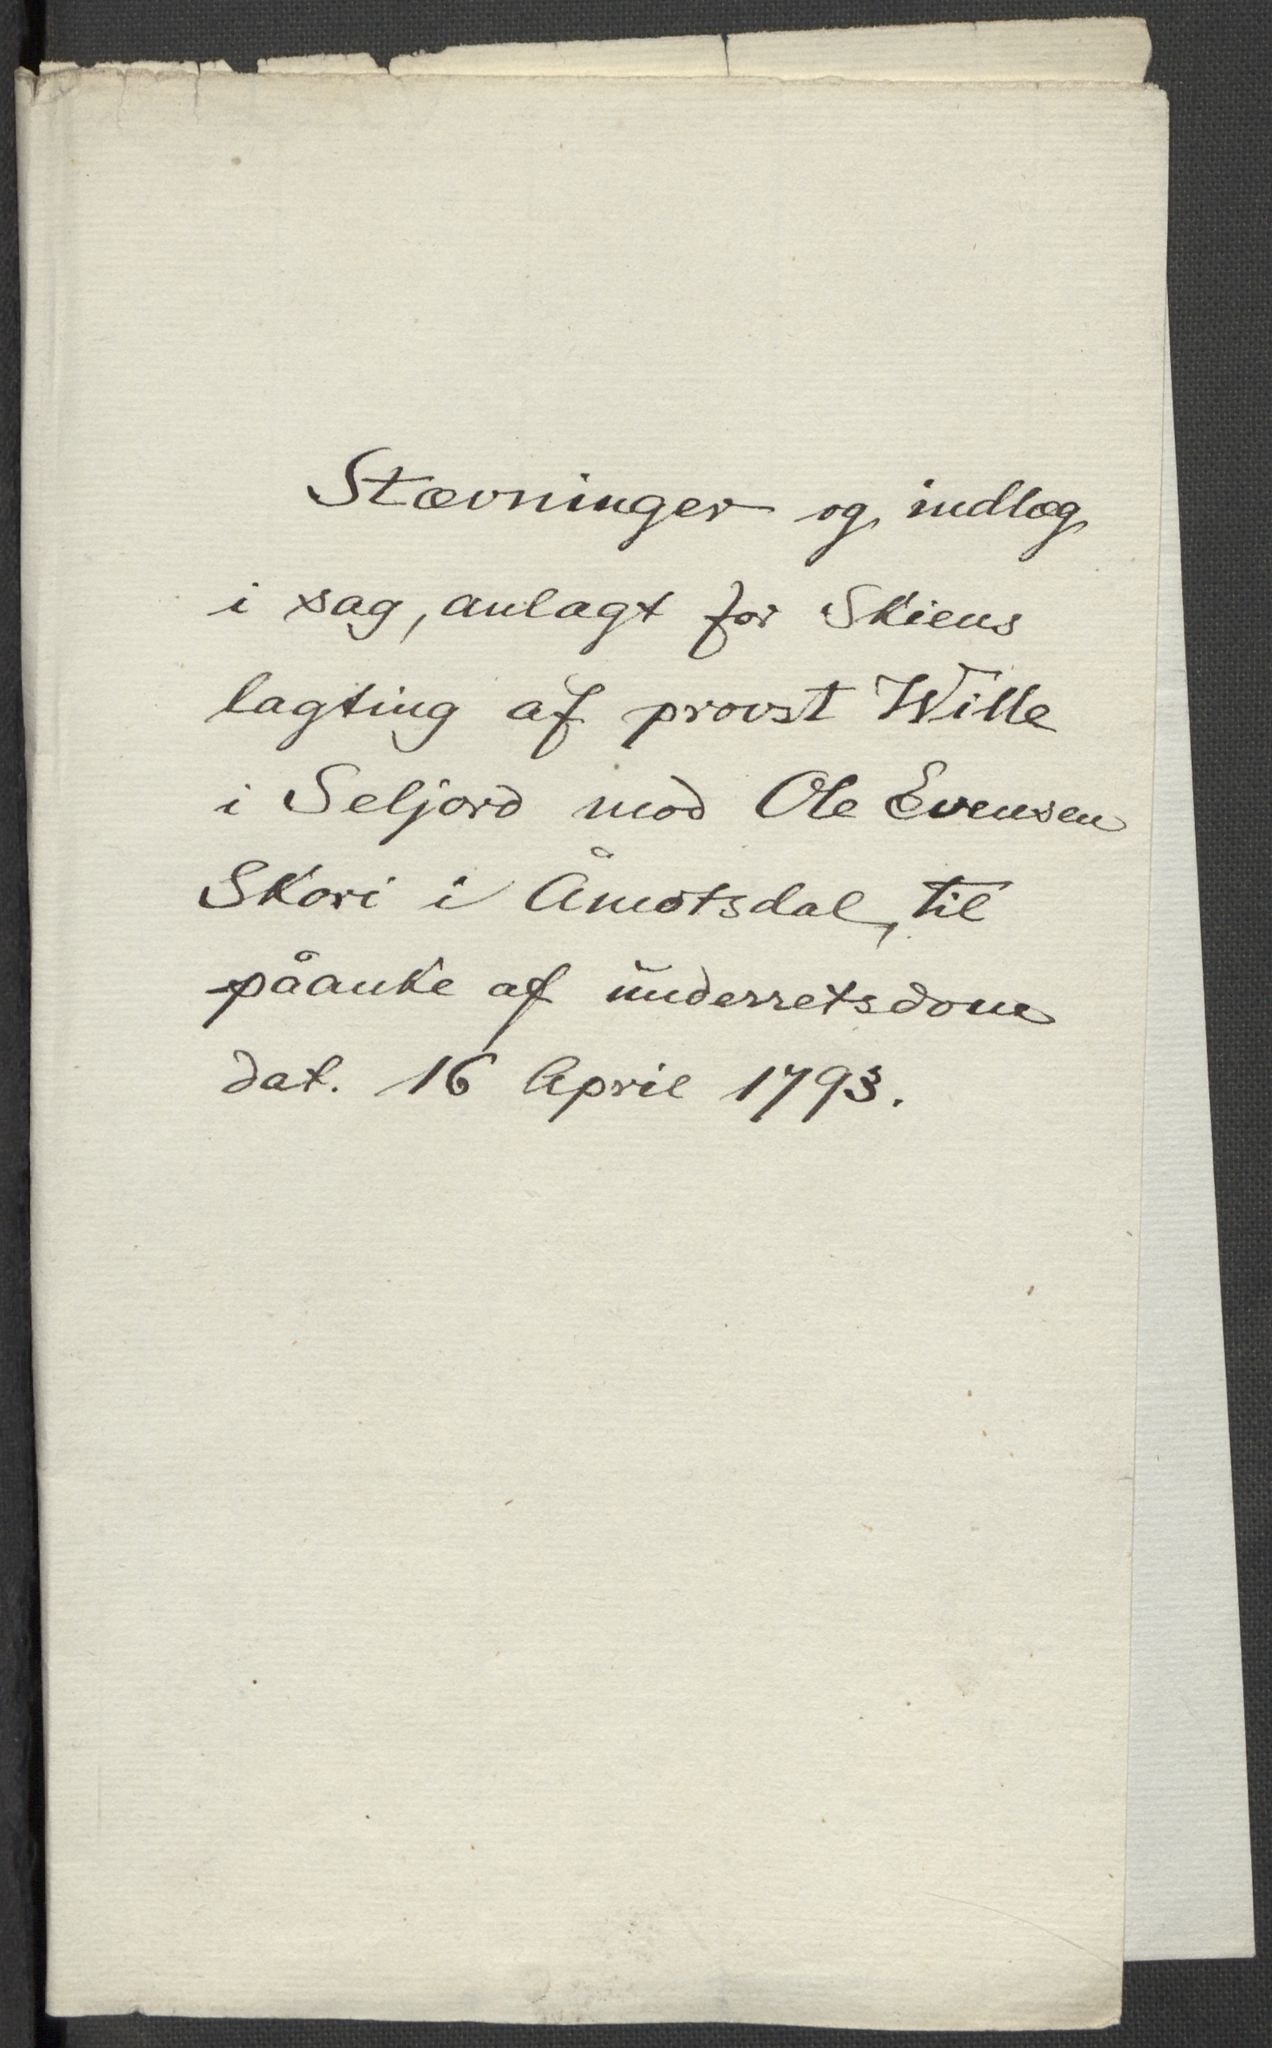 Stævninger og indlæg
i sag, anlagt for Skiens
lagting af provst Wille
i Seljord mod Ole Evensen
Skori i Åmotsdal, til
påanke af underretsdom
dat. 16 April 1793.